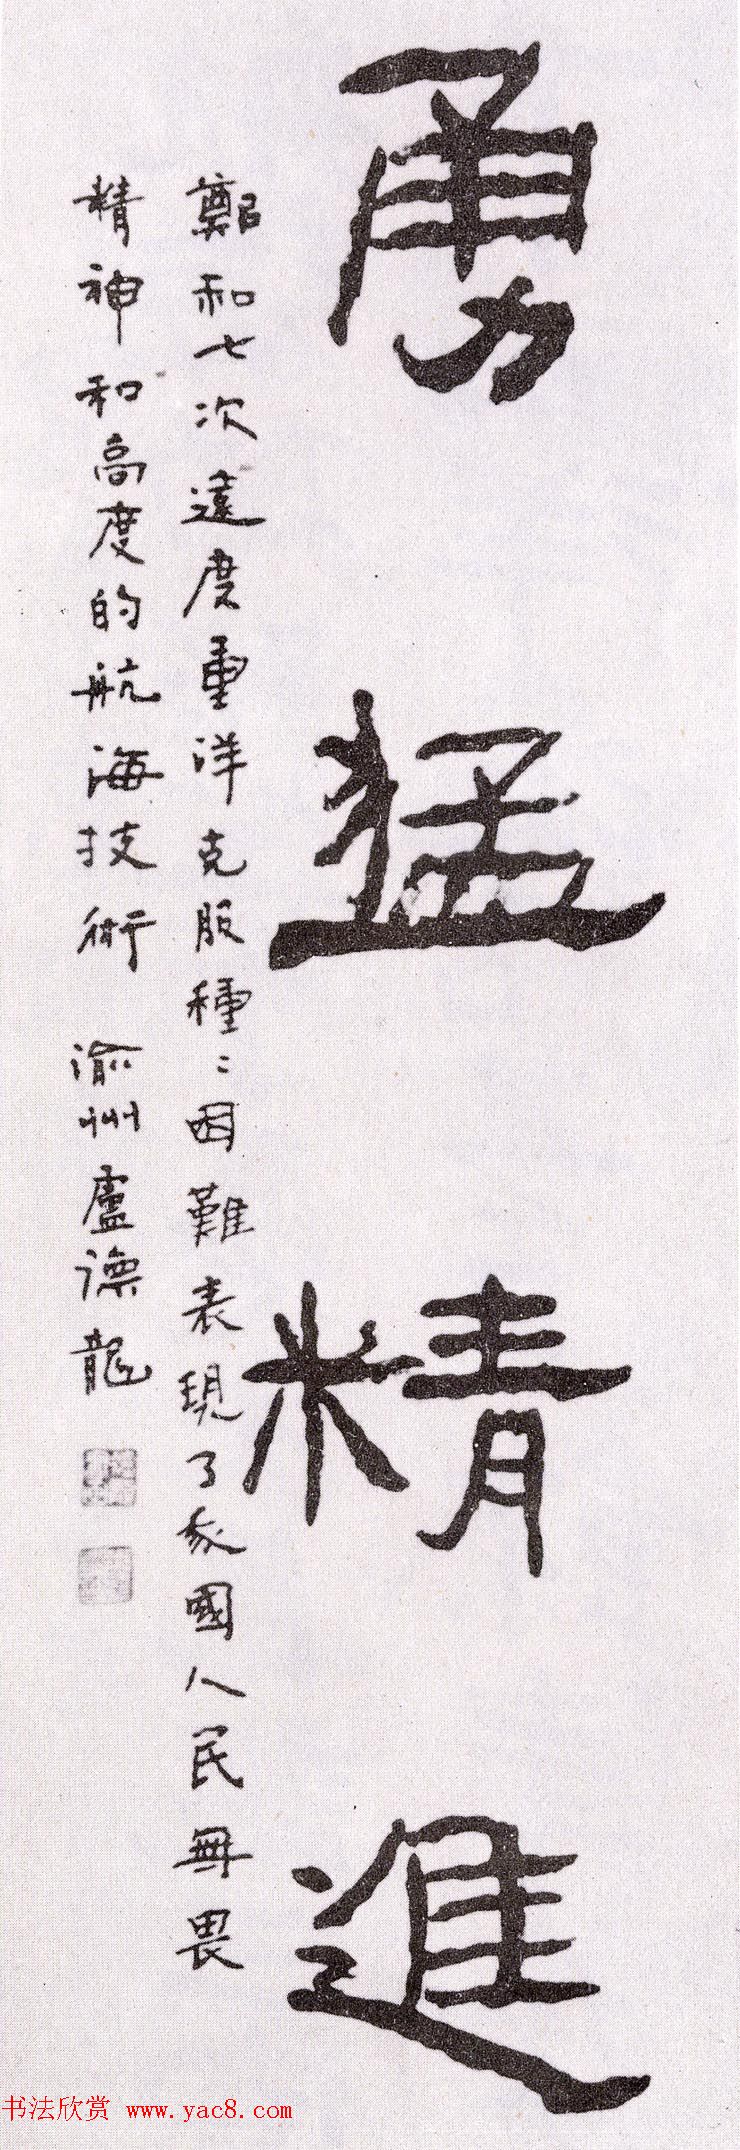 勇猛精進
鄭和七次遠度重洋克服種〻困難表現了我國人民無畏
精神和高度的航海技術 渝州盧德龍
书法欣赏 www.yac8.com